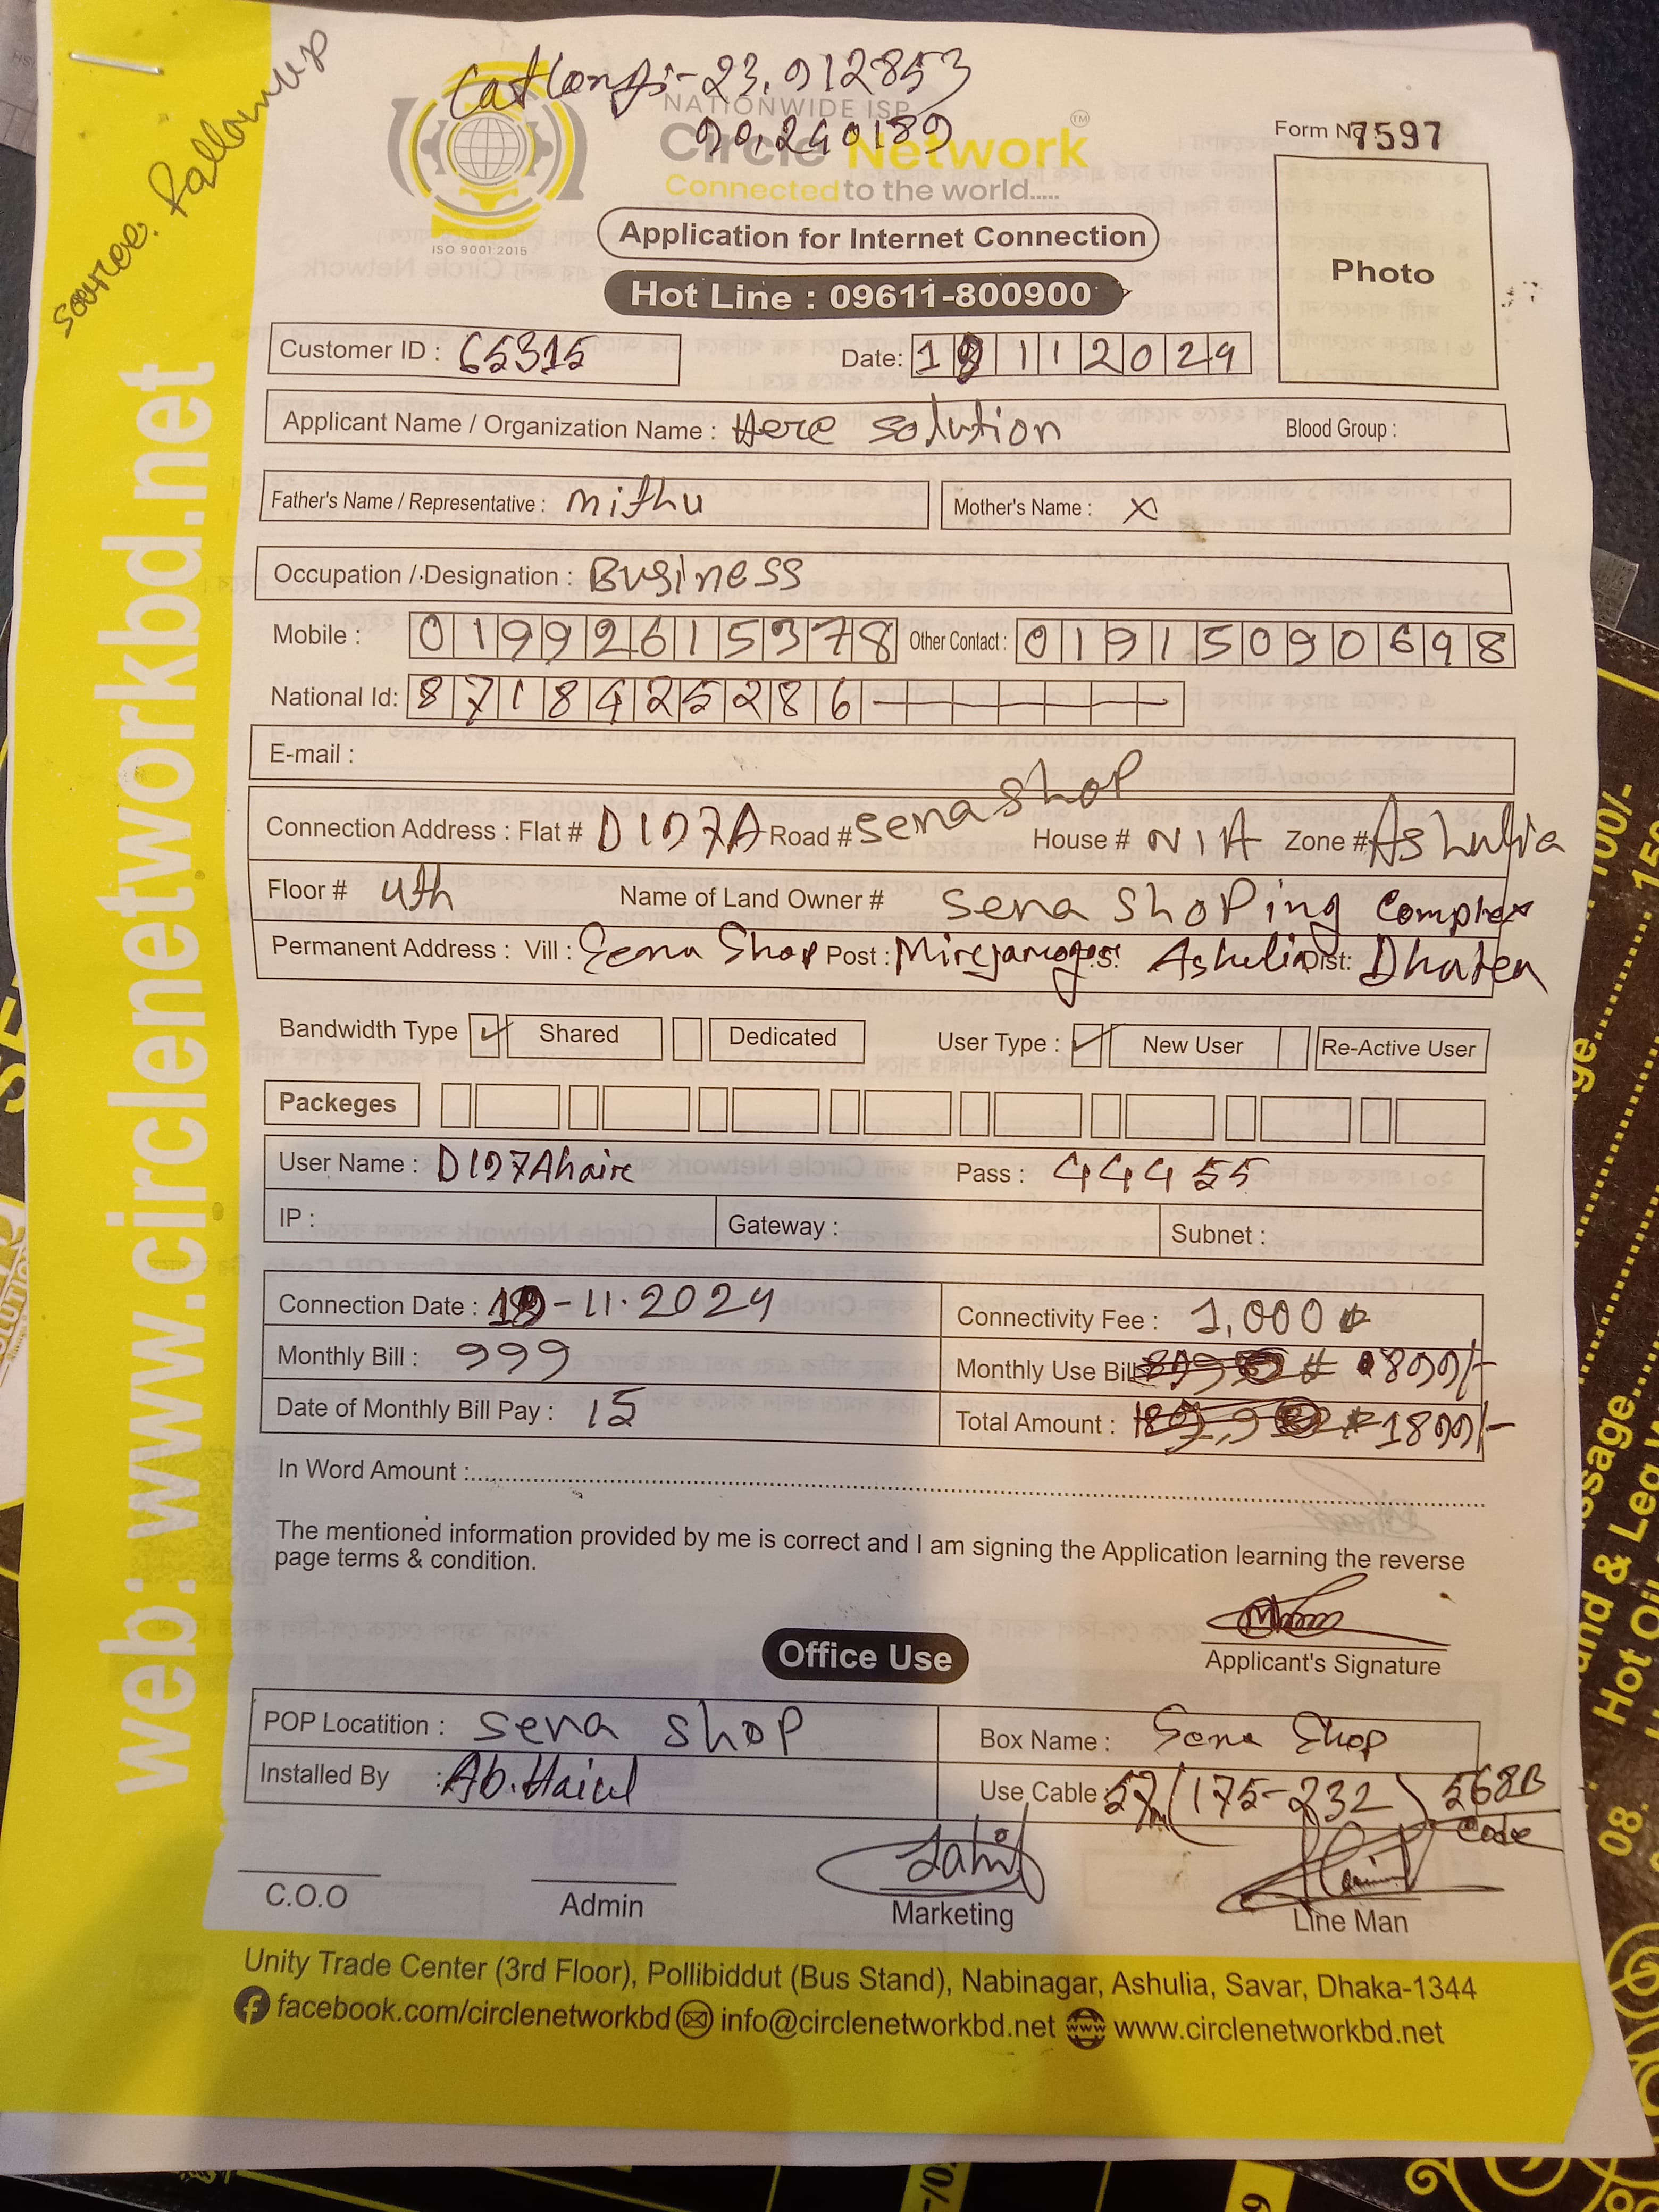 23.912853
90.240189
NATIONWIDE ISP
Circle Network TM
Connected to the world.....
ISO 9001:2015
Form No 7597
Photo
Application for Internet Connection
Hot Line : 09611-800900
Customer ID : 65315
Date: 1 1 1 2 0 2 4
Applicant Name / Organization Name : Here solution Blood Group :
Father's Name / Representative : mithu Mother's Name : x
Occupation / Designation : Business
Mobile : 01992615378 Other Contact : 01915090698
National Id: 8718425286
E-mail :
Connection Address : Flat # D127A Road # sena shop House # N/A Zone # Ashulia
Floor # 4th Name of Land Owner # sena shoping complex
Permanent Address : Vill : Sena Shop Post : Ashulia Dist:
Bandwidth Type ✓ Shared Dedicated User Type : ✓ New User Re-Active User
Packeges
User Name : Pass : 44455
IP : Gateway : Subnet :
Connection Date : -11.2024 Connectivity Fee : 1,000
Monthly Bill : 999 Monthly Use Bill 899/-
Date of Monthly Bill Pay : 15 Total Amount : 1899/-
In Word Amount :
The mentioned information provided by me is correct and I am signing the Application learning the reverse
page terms & condition.
Applicant's Signature
Office Use
POP Locatition : sena shop Box Name : Sena Shop
Installed By : Use Cable : 57m (175-232) 568B
Code
C.O.O Admin Marketing Line Man
Unity Trade Center (3rd Floor), Pollibiddut (Bus Stand), Nabinagar, Ashulia, Savar, Dhaka-1344
facebook.com/circlenetworkbd info@circlenetworkbd.net www.circlenetworkbd.net
web: www.circlenetworkbd.net